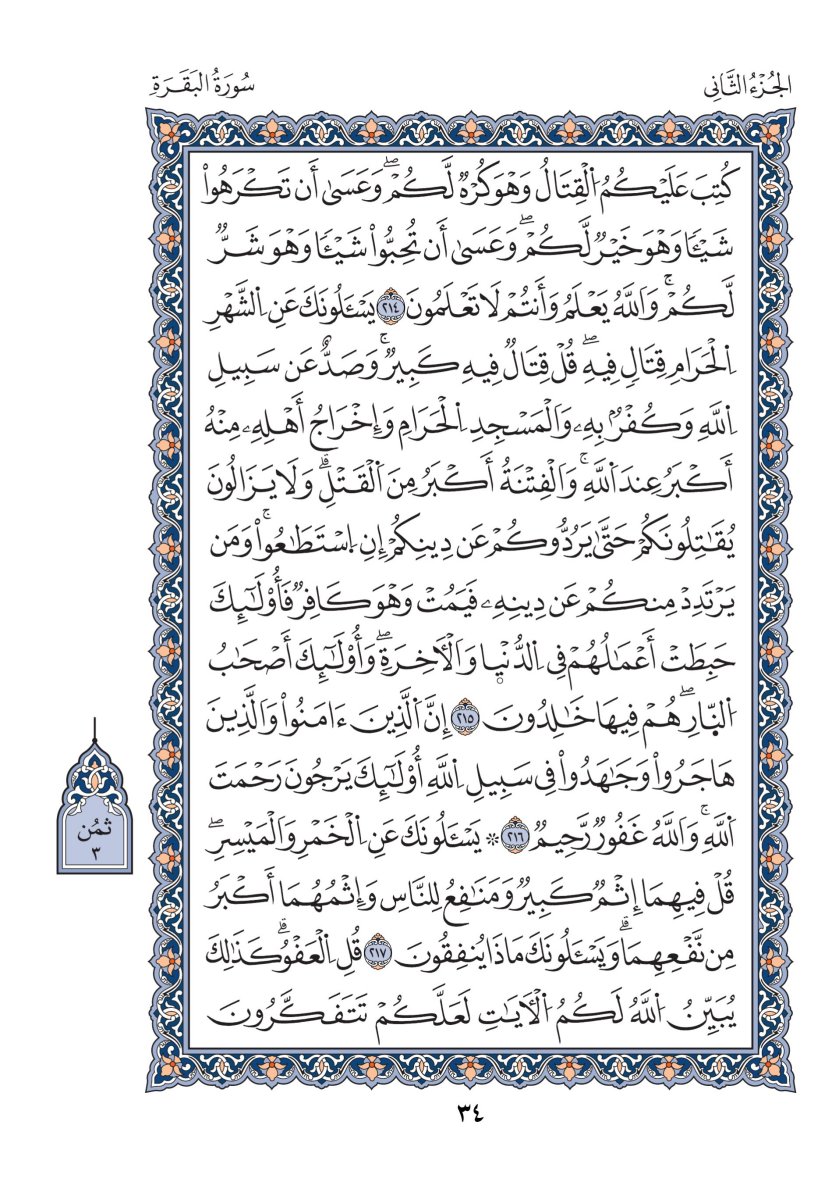 الجُزْءُ الثَّانِي
سُورَةُ البَقَرَةِ
كُتِبَ عَلَيْكُمُ اُ۬لْقِتَالُ وَهْوَ كُرْهٌ لَّكُمْۖ وَعَسَىٰ أَن تَكْرَهُواْ
شَيْـًٔا وَهْوَ خَيْرٌ لَّكُمْۖ وَعَسَىٰ أَن تُحِبُّواْ شَيْـًٔا وَهْوَ شَرٌّ
لَّكُمْۚ وَاَللَّهُ يَعْلَمُ وَأَنتُمْ لَا تَعْلَمُونَ ٢١٤ يَسْـَٔلُونَكَ عَنِ اِ۬لشَّهْرِ
اِ۬لْحَرَامِ قِتَالٖ فِيهِۖ قُلْ قِتَالٌ فِيهِ كَبِيرٌۚ وَصَدٌّ عَن سَبِيلِ
اِ۬للَّهِ وَكُفْرٌۢ بِهِۦ وَاَلْمَسْجِدِ اِ۬لْحَرَامِ وَإِخْرَاجُ أَهْلِهِۦ مِنْهُ
أَكْبَرُ عِندَ اَ۬للَّهِۚ وَاَلْفِتْنَةُ أَكْبَرُ مِنَ اَ۬لْقَتْلِۗ وَلَا يَزَالُونَ
يُقَٰتِلُونَكُمْ حَتَّىٰ يَرُدُّوكُمْ عَن دِينِكُمْ إِنِ اِ۪سْتَطَٰعُواْۚ وَمَن
يَرْتَدِدْ مِنكُمْ عَن دِينِهِۦ فَيَمُتْ وَهْوَ كَافِرٌ فَأُوْلَٰٓئِكَ
حَبِطَتْ أَعْمَٰلُهُمْ فِي اِ۬لدُّنْيَا وَاَلْأٓخِرَةِۖ وَأُوْلَٰٓئِكَ أَصْحَٰبُ
اُ۬لنَّارِۖ هُمْ فِيهَا خَٰلِدُونَ ٢١٥ إِنَّ اَ۬لَّذِينَ ءَامَنُواْ وَاَلَّذِينَ
هَاجَرُواْ وَجَٰهَدُواْ فِي سَبِيلِ اِ۬للَّهِ أُوْلَٰٓئِكَ يَرْجُونَ رَحْمَتَ
اَ۬للَّهِۚ وَاَللَّهُ غَفُورٌ رَّحِيمٌ ٢١٦ ۞ يَسْـَٔلُونَكَ عَنِ اِ۬لْخَمْرِ وَاَلْمَيْسِرِۖ
قُلْ فِيهِمَا إِثْمٌ كَبِيرٌ وَمَنَٰفِعُ لِلنَّاسِ وَإِثْمُهُمَا أَكْبَرُ
مِن نَّفْعِهِمَاۗ وَيَسْـَٔلُونَكَ مَاذَا يُنفِقُونَ ٢١٧ قُلِ اِ۬لْعَفْوُۗ كَذَٰلِكَ
يُبَيِّنُ اُ۬للَّهُ لَكُمُ اُ۬لْأٓيَٰتِ لَعَلَّكُمْ تَتَفَكَّرُونَ
ثُمُن
٣
٣٤